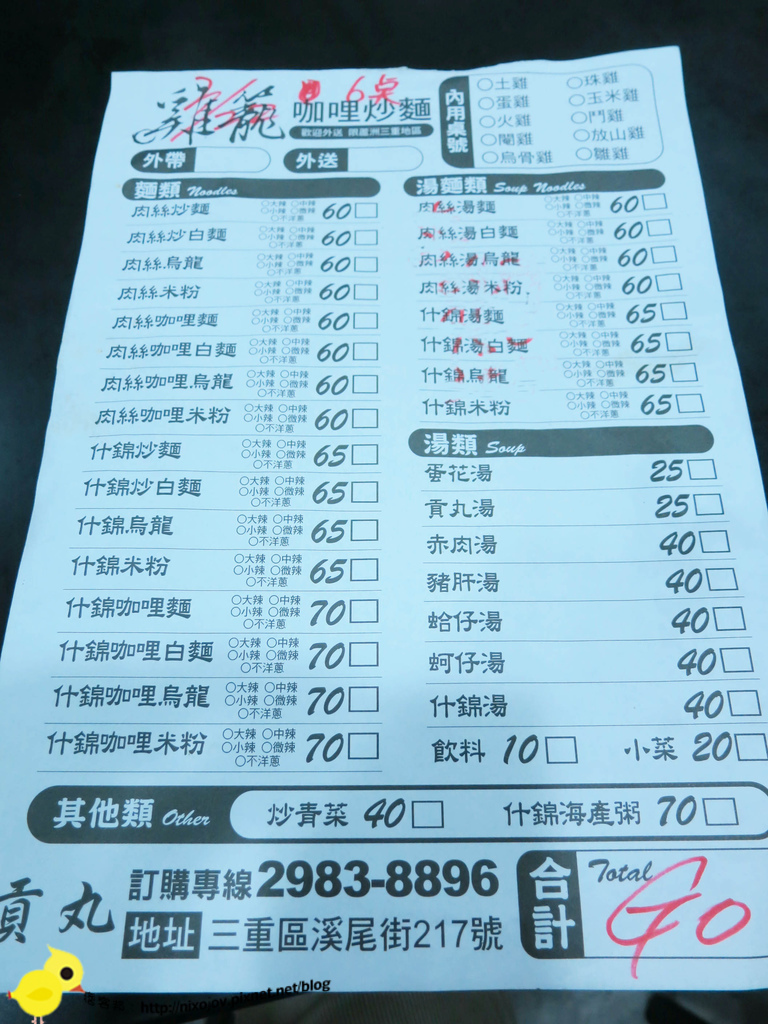 雞籠 咖哩炒麵
6桌
歡迎外送 限蘆洲三重地區
外帶 外送
內用桌號
○土雞 ○珠雞
○蛋雞 ○玉米雞
○火雞 ○鬥雞
○閹雞 ○放山雞
○烏骨雞 ○雛雞
麵類 Noodles
肉絲炒麵 ○大辣 ○中辣 ○小辣 ○微辣 ○不洋蔥 60
肉絲炒白麵 ○大辣 ○中辣 ○小辣 ○微辣 ○不洋蔥 60
肉絲烏龍 ○大辣 ○中辣 ○小辣 ○微辣 ○不洋蔥 60
肉絲米粉 ○大辣 ○中辣 ○小辣 ○微辣 ○不洋蔥 60
肉絲咖哩麵 ○大辣 ○中辣 ○小辣 ○微辣 ○不洋蔥 60
肉絲咖哩白麵 ○大辣 ○中辣 ○小辣 ○微辣 ○不洋蔥 60
肉絲咖哩烏龍 ○大辣 ○中辣 ○小辣 ○微辣 ○不洋蔥 60
肉絲咖哩米粉 ○大辣 ○中辣 ○小辣 ○微辣 ○不洋蔥 60
什錦炒麵 ○大辣 ○中辣 ○小辣 ○微辣 ○不洋蔥 65
什錦炒白麵 ○大辣 ○中辣 ○小辣 ○微辣 ○不洋蔥 65
什錦烏龍 ○大辣 ○中辣 ○小辣 ○微辣 ○不洋蔥 65
什錦米粉 ○大辣 ○中辣 ○小辣 ○微辣 ○不洋蔥 65
什錦咖哩麵 ○大辣 ○中辣 ○小辣 ○微辣 ○不洋蔥 70
什錦咖哩白麵 ○大辣 ○中辣 ○小辣 ○微辣 ○不洋蔥 70
什錦咖哩烏龍 ○大辣 ○中辣 ○小辣 ○微辣 ○不洋蔥 70
什錦咖哩米粉 ○大辣 ○中辣 ○小辣 ○微辣 ○不洋蔥 70
湯麵類 Soup Noodles
肉絲湯麵 ○大辣 ○中辣 ○小辣 ○微辣 ○不洋蔥 60
肉絲湯白麵 ○大辣 ○中辣 ○小辣 ○微辣 ○不洋蔥 60
肉絲湯烏龍 ○大辣 ○中辣 ○小辣 ○微辣 ○不洋蔥 60
肉絲湯米粉 ○大辣 ○中辣 ○小辣 ○微辣 ○不洋蔥 60
什錦湯麵 ○大辣 ○中辣 ○小辣 ○微辣 ○不洋蔥 65
什錦湯白麵 ○大辣 ○中辣 ○小辣 ○微辣 ○不洋蔥 65
什錦烏龍 ○大辣 ○中辣 ○小辣 ○微辣 ○不洋蔥 65
什錦米粉 ○大辣 ○中辣 ○小辣 ○微辣 ○不洋蔥 65
湯類 Soup
蛋花湯 25
貢丸湯 25
赤肉湯 40
豬肝湯 40
蛤仔湯 40
蚵仔湯 40
什錦湯 40
飲料 10 小菜 20
其他類 Other 炒青菜 40 什錦海產粥 70
貢丸
訂購專線2983-8896
地址 三重區溪尾街217號
合計 Total
http://nixojov.pixnet.net/blog